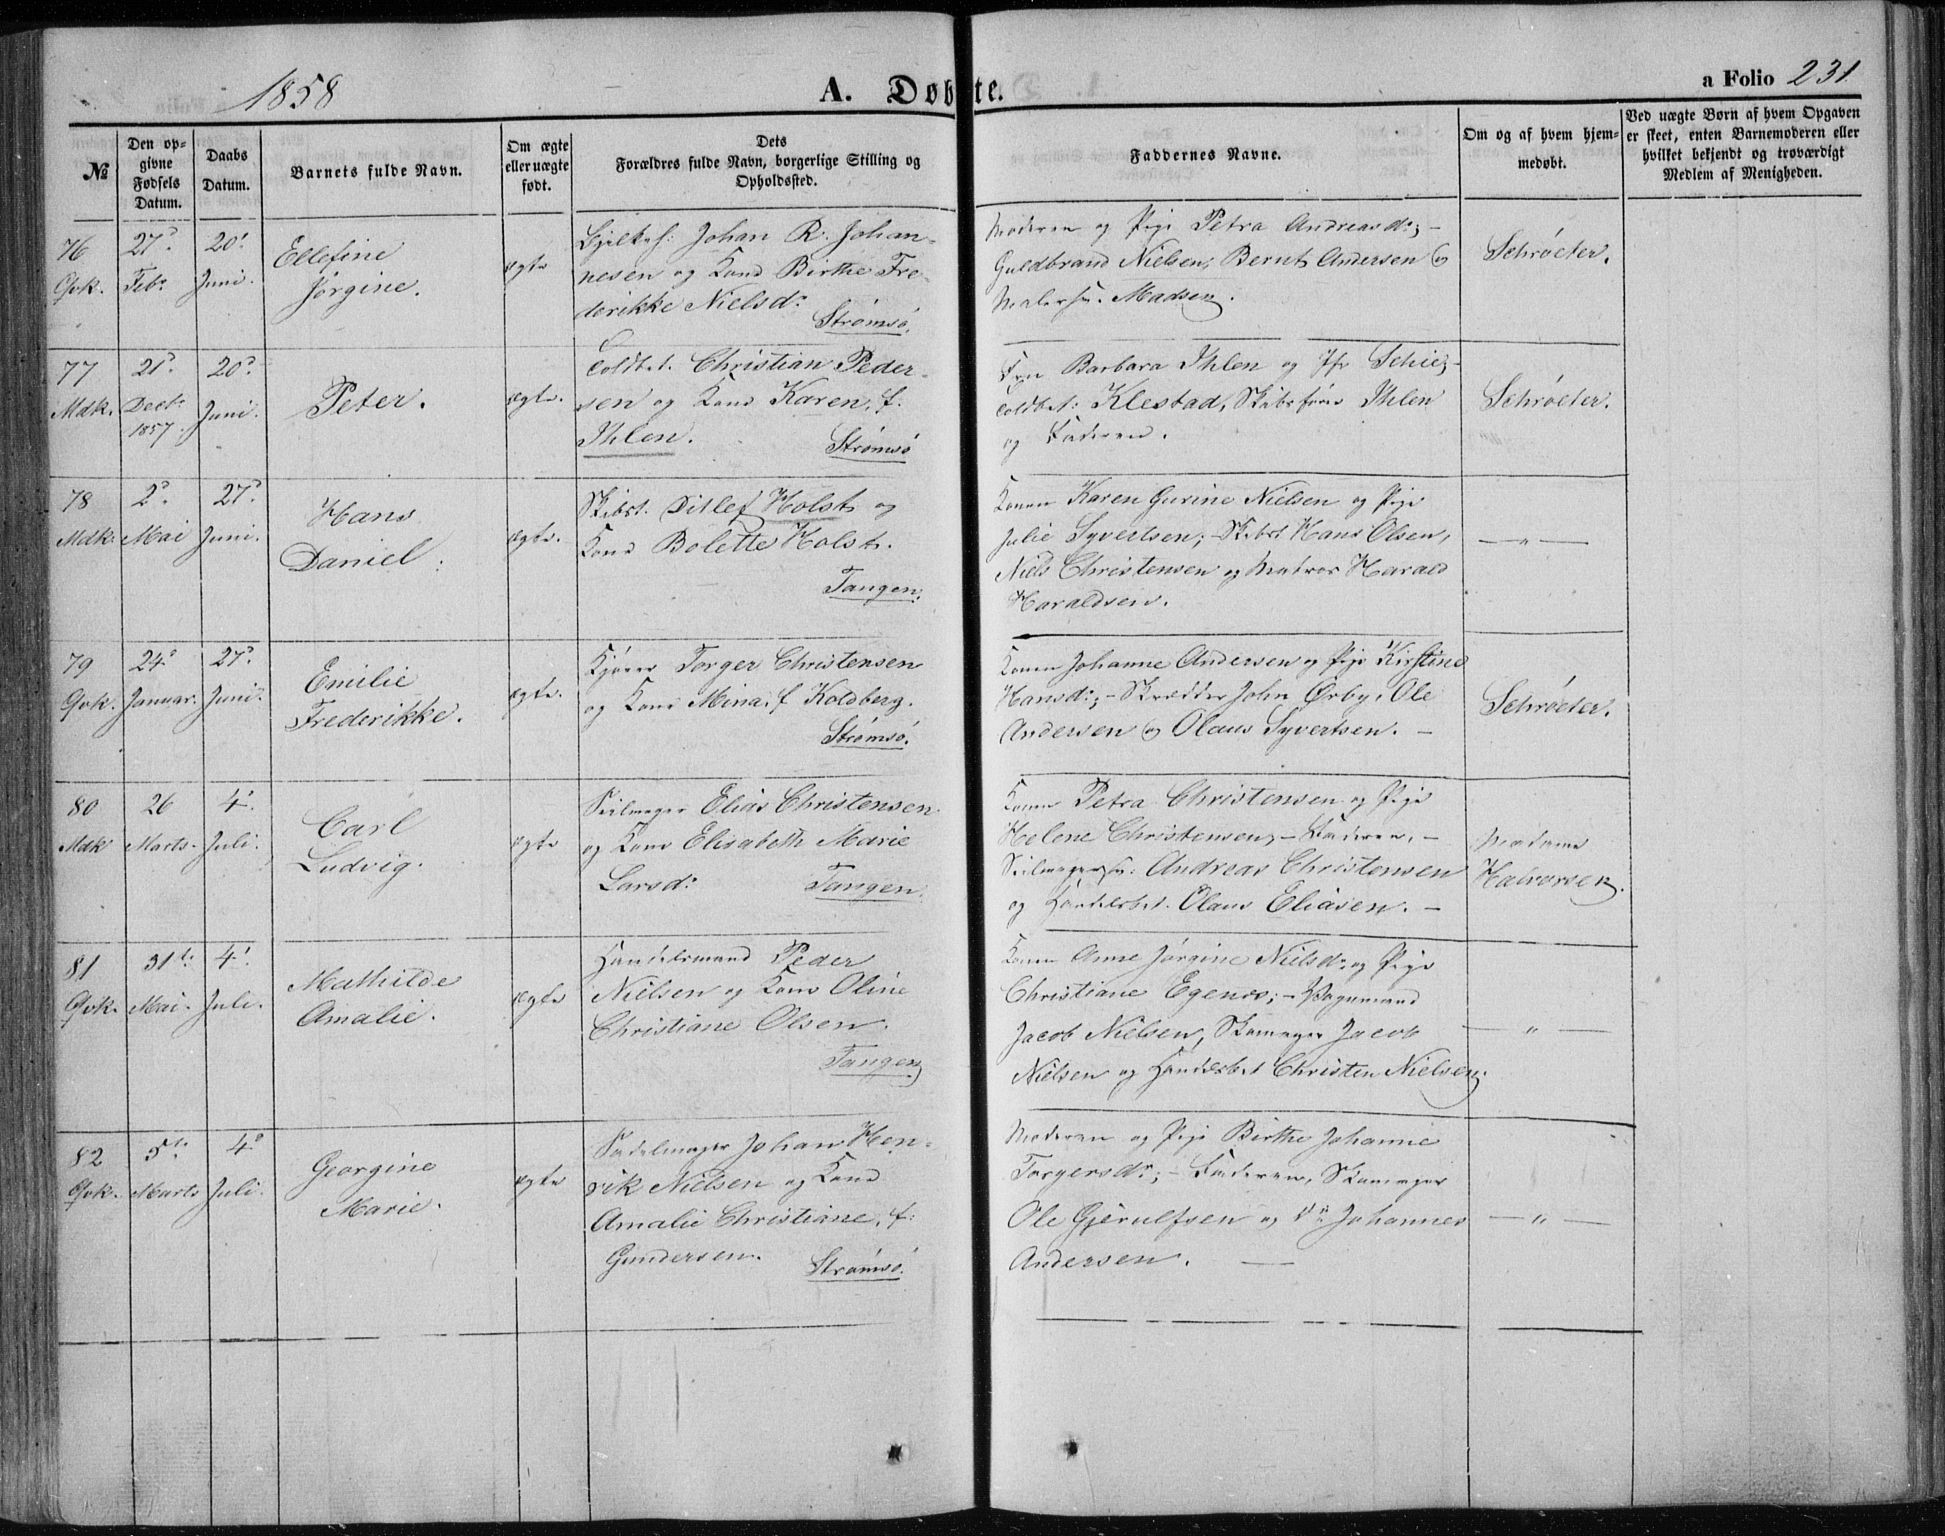 1858
A. Døbte.
a Folio 231
№
Den op-
givne
Fødsels
Datum.
Daabs
Datum.
Barnets fulde Navn.
Om ægte
eller uægte
født.
Dets
Forældres fulde Navn, borgerlige Stilling og
Opholdssted.
Faddernes Navne.
Om og af hvem hjem-
medøbt.
Ved uægte Børn af hvem Opgaven
er skeet, enten Barnemoderen eller
hvilket bekjendt og troværdigt
Medlem af Menigheden.
76
Qvk.
27de
Febr.
20de
Juni.
Ellefine
Jørgine.
ægte
Johan R. Johan-
nesen og Kone Birthe Fre-
derikke Nielsdr.
Strømsø.
Moderen og Pige Petra Andreasdr; -
Guldbrand Nielsen, Bernt Andersen og
Malersv. Madsen.
Schrøeter.
77
Mdk.
21de
Decbr
1857.
20de
Juni.
Peter.
ægte.
Toldbet. Christian Peder-
sen og Kone Karen, f.
Ihlen.
Strømsø
Fru Barbara Ihlen og Jfr Schie; -
Toldbet: Klestad, Skibsfører Ihlen
og Faderen.
Schrøeter.
78
Mdk.
2de
Mai
27de
Juni.
Hans
Daniel.
ægte.
Skibst. Ditlef Holst og
Kone Bolette Holst.
Tangen.
Konen Karen Gurine Nielsen og Pige
Julie Syvertsen; - Skibst Hans Olsen,
Niels Christensen og Matros Harald
Haraldsen.
— " —
79
Qvk.
24de
Januar.
27de
Juni.
Emilie
Frederikke.
ægte.
Kjører Torger Christensen
og Kone Mina, f. Koldberg.
Strømsø.
Konen Johanne Andersen og Pige Kirstine
Hansdr; - Skrædder John Ørby, Ole
Andersen og Olaus Syvertsen. -
Schrøeter.
80
Mdk
26
Marts.
4de
Juli.
Carl
Ludvig.
ægte
Seilmager Elias Christensen
og Kone Elisabeth Marie
Larsdr.
Tangen.
Konen Petra Christensen og Pige
Helene Christensen, - Faderen, -
Seilmagersv. Andreas Christensen
og Handelsbet. Olaus Eliasen. -
Madame
Halvorsen.
81
Qvk.
31te
Mai.
4de
Juli.
Mathilde
Amalie.
ægte
Handelsmand Peder
Nielsen og Kone Oline
Christiane Olsen.
Tangen
Konen Anne Jørgine Nielsdr. og Pige
Christiane Egenes; -
Jacob Nielsen, Skomager Jacob
Nielsen og Handelsbet Christen Nielsen.
— " —
82
Qvk.
5te
Marts
4de
Juli.
Georgine
Marie.
ægte
Sadelmager Johan Hen-
rik Nielsen og Kone
Amalie Christiane, f.
Gundersen.
Strømsø.
Moderen og Pige Birthe Johanne
Torgersdr; - Faderen, Skomager
Ole Gjerulfsen og Do Johannes
Andersen. —
— " —